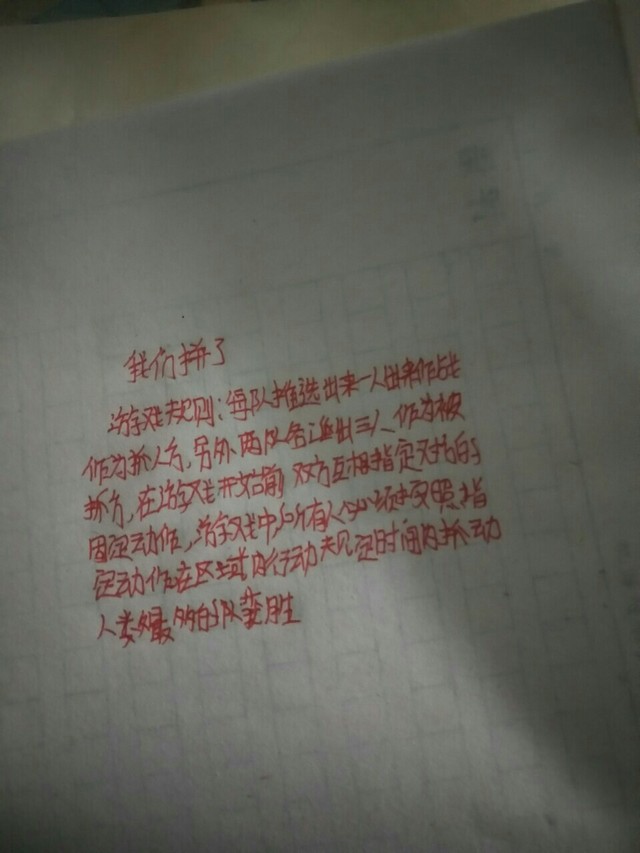 我们拼了
游戏规则：每队推选出来一人出来作战
作为抓人方，另外两队各选出三人作为被
抓方，在游戏开始前双方互相指定对方的
固定动作，游戏中所有人必须按照指
定动作在区域内行动规定时间内抓动
人数最多的队获胜